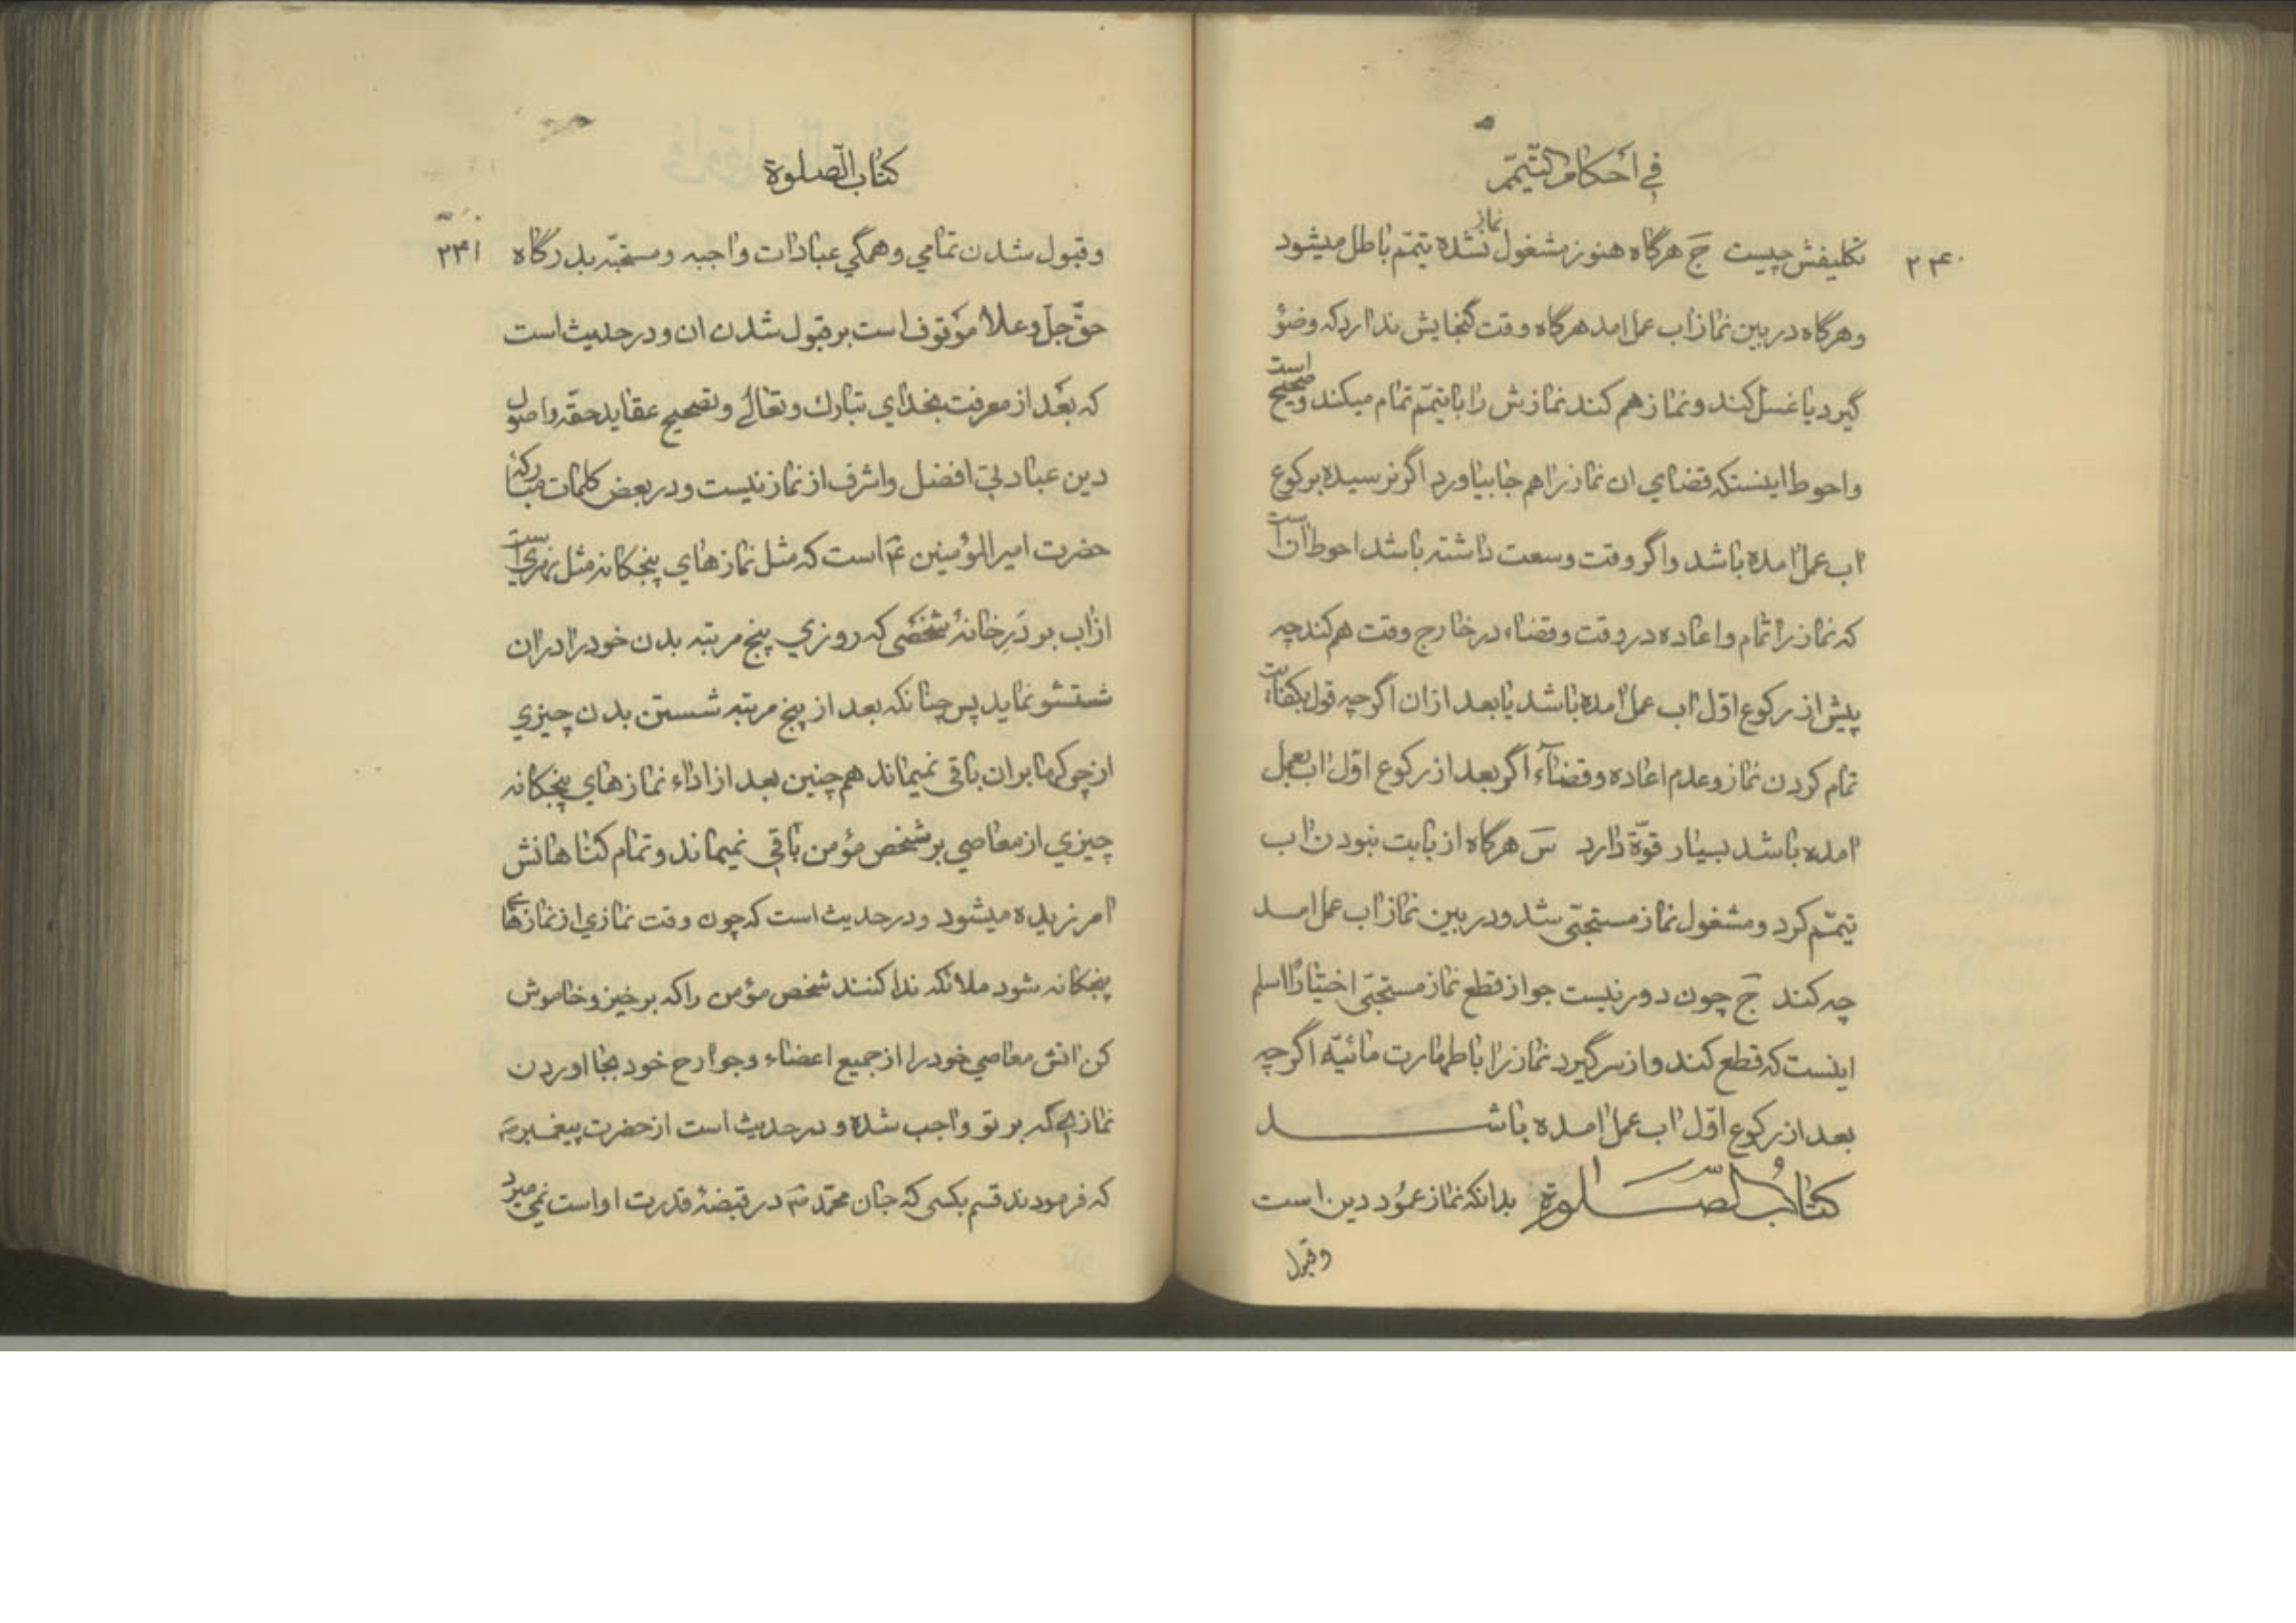 في أحكام التّيمّم
۲۴۰
تکلیفش چیست جَ هرگاه هنوز مشغول نماز نشده تیمّم باطل میشود
وهرگاه در بین نماز اب عمل امد هرگاه وقت گنجایش ندارد که وضؤ
گیرد یا غسل کند و نماز هم کند نمازش را با تیمّم تمام میکند وصحیح است
واحوط اینستکه قضاي ان نماز را هم جا بیاورد اگر نرسیده برکوع
اب عمل امده باشد واگر وقت وسعت داشته باشد احوط ان است
که نماز را تمام واعاده در وقت وقضاء در خارج وقت هم کند چه
پیش از رکوع اوّل اب عمل امده باشد یا بعد از ان اگرچه قول بکفایت
تمام کردن نماز وعدم اعاده وقضآء اگر بعد از رکوع اوّل اب بعمل
امده باشد بسیار قوّة دارد سَ هرگاه از بابت نبودن اب
تیمّم کرد ومشغول نماز مستحبّی شد ودر بین نماز اب عمل امد
چه کند جَ چون دور نیست جواز قطع نماز مستحبّی اختیارًا اسلم
اینست که قطع کند واز سر گیرد نماز را با طهارت مائیّه اگرچه
بعد از رکوع اوّل اب عمل امده باشد
کتابُ الصّلوة بدانکه نماز عمُود دین است
وقبول
کتاب الصّلوة
۲۴۱
وقبول شدن تمامي وهمگي عبادات واجبه ومستحبّه بدرگاه
حقّ جلّ وعلا موْقوف است بر قبول شدن ان ودر حدیث است
که بعْد از معرفت بخداي تبارك وتعالىٰ وتصحیح عقاید حقّه واصول
دین عبادتي افضل واشرف از نماز نیست ودر بعض کلمات مبارکهٔ
حضرت امیر المؤمنین عَ است که مثل نمازهاي پنجکانه مثل نهري است
از اب بر دَرِ خانهٔ شخصی که روزي پنج مرتبه بدن خود را در ان
شستشو نماید پس چنانکه بعد از پنج مرتبه شستن بدن چیزي
از چرکها بر ان باقی نمیماند هم چنین بعد از اداء نمازهاي پنجکانه
چیزي از معاصي بر شخص مؤمن باقي نمیماند وتمام کناهانش
امرزیده میشود ودر حدیث است که چون وقت نمازي از نمازهاي
پنجکانه شود ملائکه ندا کنند شخص مؤمن را که برخیز وخاموش
کن اتش معاصي خود را از جمیع اعضاء وجوارح خود بجا اوردن
نمازي که بر تو واجب شده ودر حدیث است از حضرت پیغمبر صَ
که فرمودند قسم بکسی که جان محمّد صَ در قبضهٔ قدرت اواست نمی میرد